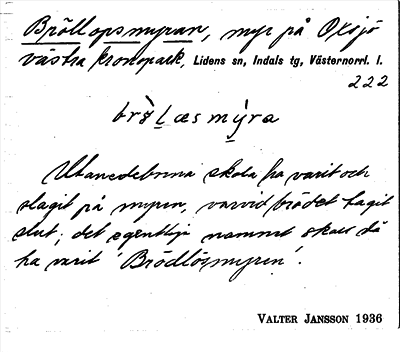 Bröllopsmyran, myr på Oxsjö
västra kronopark, Lidens sn, Indals tg, Västernorrl. l.
222
brö̀l̲æs mỳra
Utanedebrina skola ha varit och
slagit på myren, varvid brödet tagit
slut; det egentliga namnet skall då
ha varit 'Brödlösmyren'.
VALTER JANSSON 1936